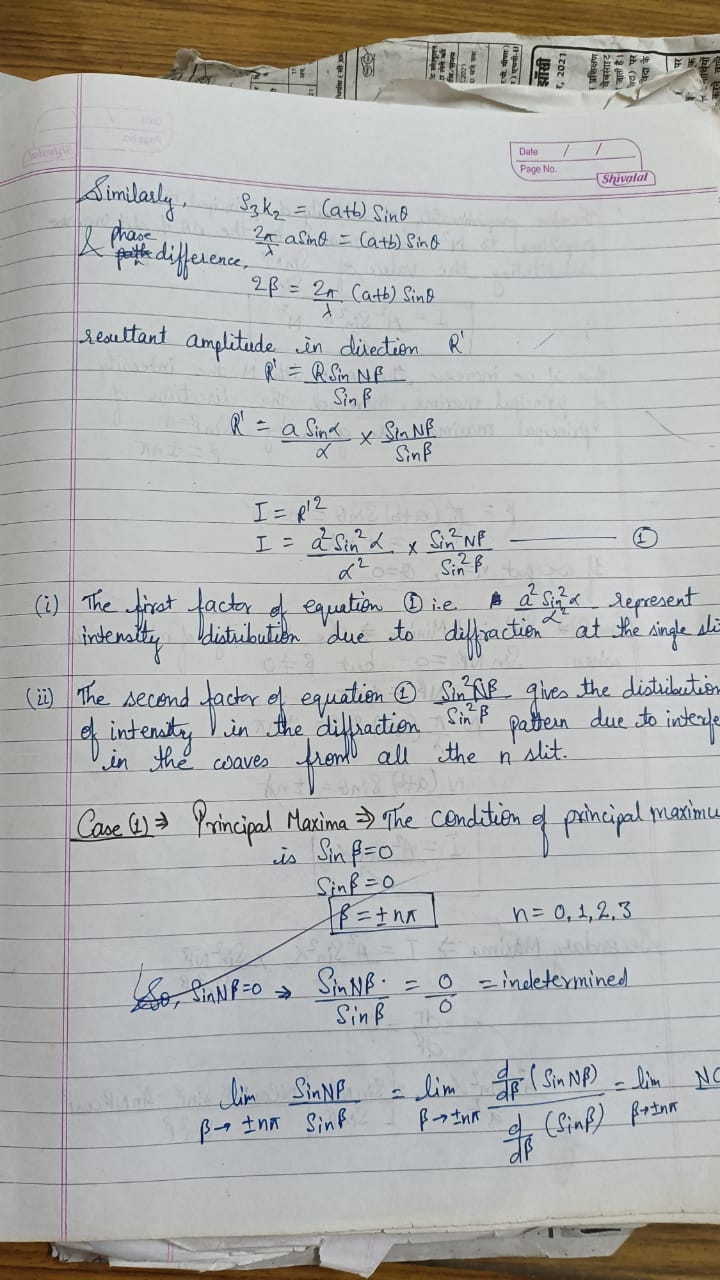 झाँसी
, 2021
Date / /
Page No.
Shivalal
Similarly, S₃k₂ = (a+b) Sinθ
2π/λ aSinθ = (a+b) Sinθ
& phase difference,
2β = 2π/λ (a+b) Sinθ
resultant amplitude in direction R'
R' = R Sin Nβ / Sin β
R' = a Sinα / α × Sin Nβ / Sinβ
I = R'²
I = a² Sin² α / α² × Sin² Nβ / Sin² β ——— ①
(i) The first factor of equation ① i.e. a² Sin² α / α² represent
intensity distribution due to diffraction at the single sli
(ii) The second factor of equation ① Sin² Nβ / Sin² β gives the distribution
of intensity in the diffraction pattern due to interfe
in the waves from all the n slit.
Case (1) ⇒ Principal Maxima ⇒ The condition of principal maximu
is Sin β=0
Sinβ = 0
β = ± nπ n= 0, 1, 2, 3
So, SinNβ=0 → SinNβ / Sin β = 0/0 = indetermined
lim β→ ±nπ SinNβ / Sinβ = lim β→±nπ d/dβ (Sin Nβ) / d/dβ (Sinβ) = lim β→±nπ NC